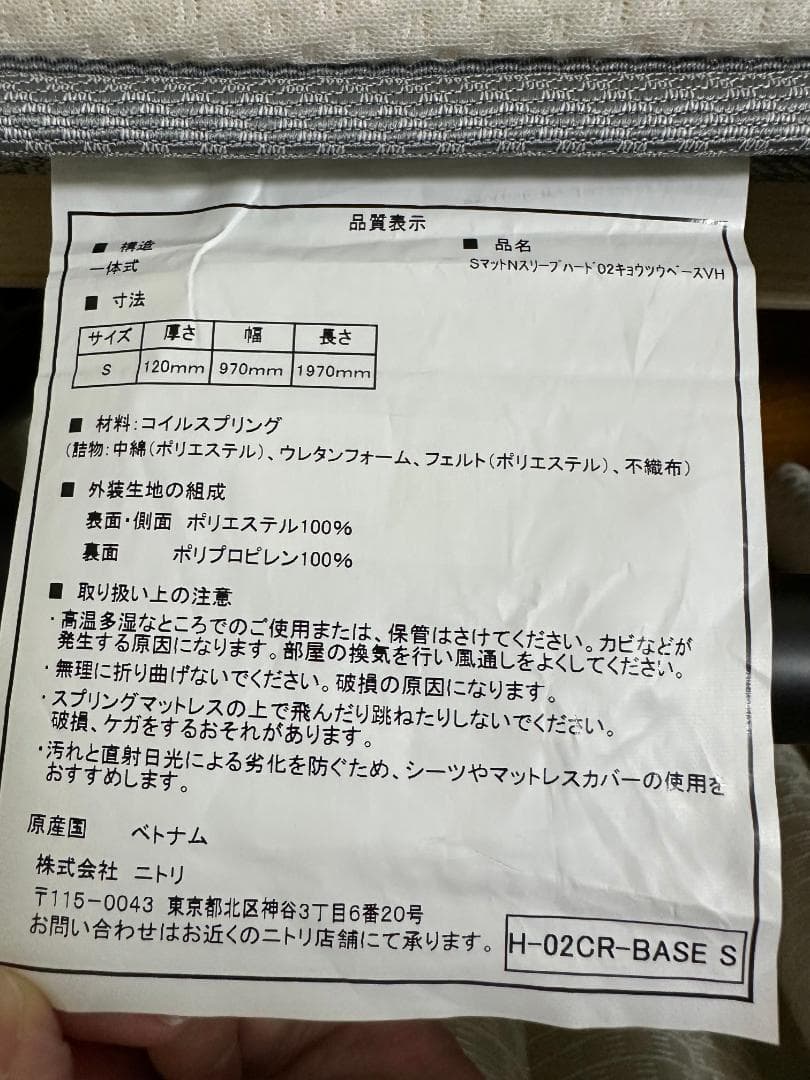 品質表示
■ 構造
一体式
■ 品名
SマットNスリープハード02キョウツウベースVH
■ 寸法
サイズ 厚さ 幅 長さ
S 120mm 970mm 1970mm
■ 材料:コイルスプリング
(詰物:中綿(ポリエステル)、ウレタンフォーム、フェルト(ポリエステル)、不織布)
■ 外装生地の組成
表面・側面 ポリエステル100%
裏面 ポリプロピレン100%
■ 取り扱い上の注意
・高温多湿なところでのご使用または、保管はさけてください。カビなどが
発生する原因になります。部屋の換気を行い風通しをよくしてください。
・無理に折り曲げないでください。破損の原因になります。
・スプリングマットレスの上で飛んだり跳ねたりしないでください。
破損、ケガをするおそれがあります。
・汚れと直射日光による劣化を防ぐため、シーツやマットレスカバーの使用を
おすすめします。
原産国 ベトナム
株式会社 ニトリ
〒115-0043 東京都北区神谷3丁目6番20号
お問い合わせはお近くのニトリ店舗にて承ります。
H-02CR-BASE S